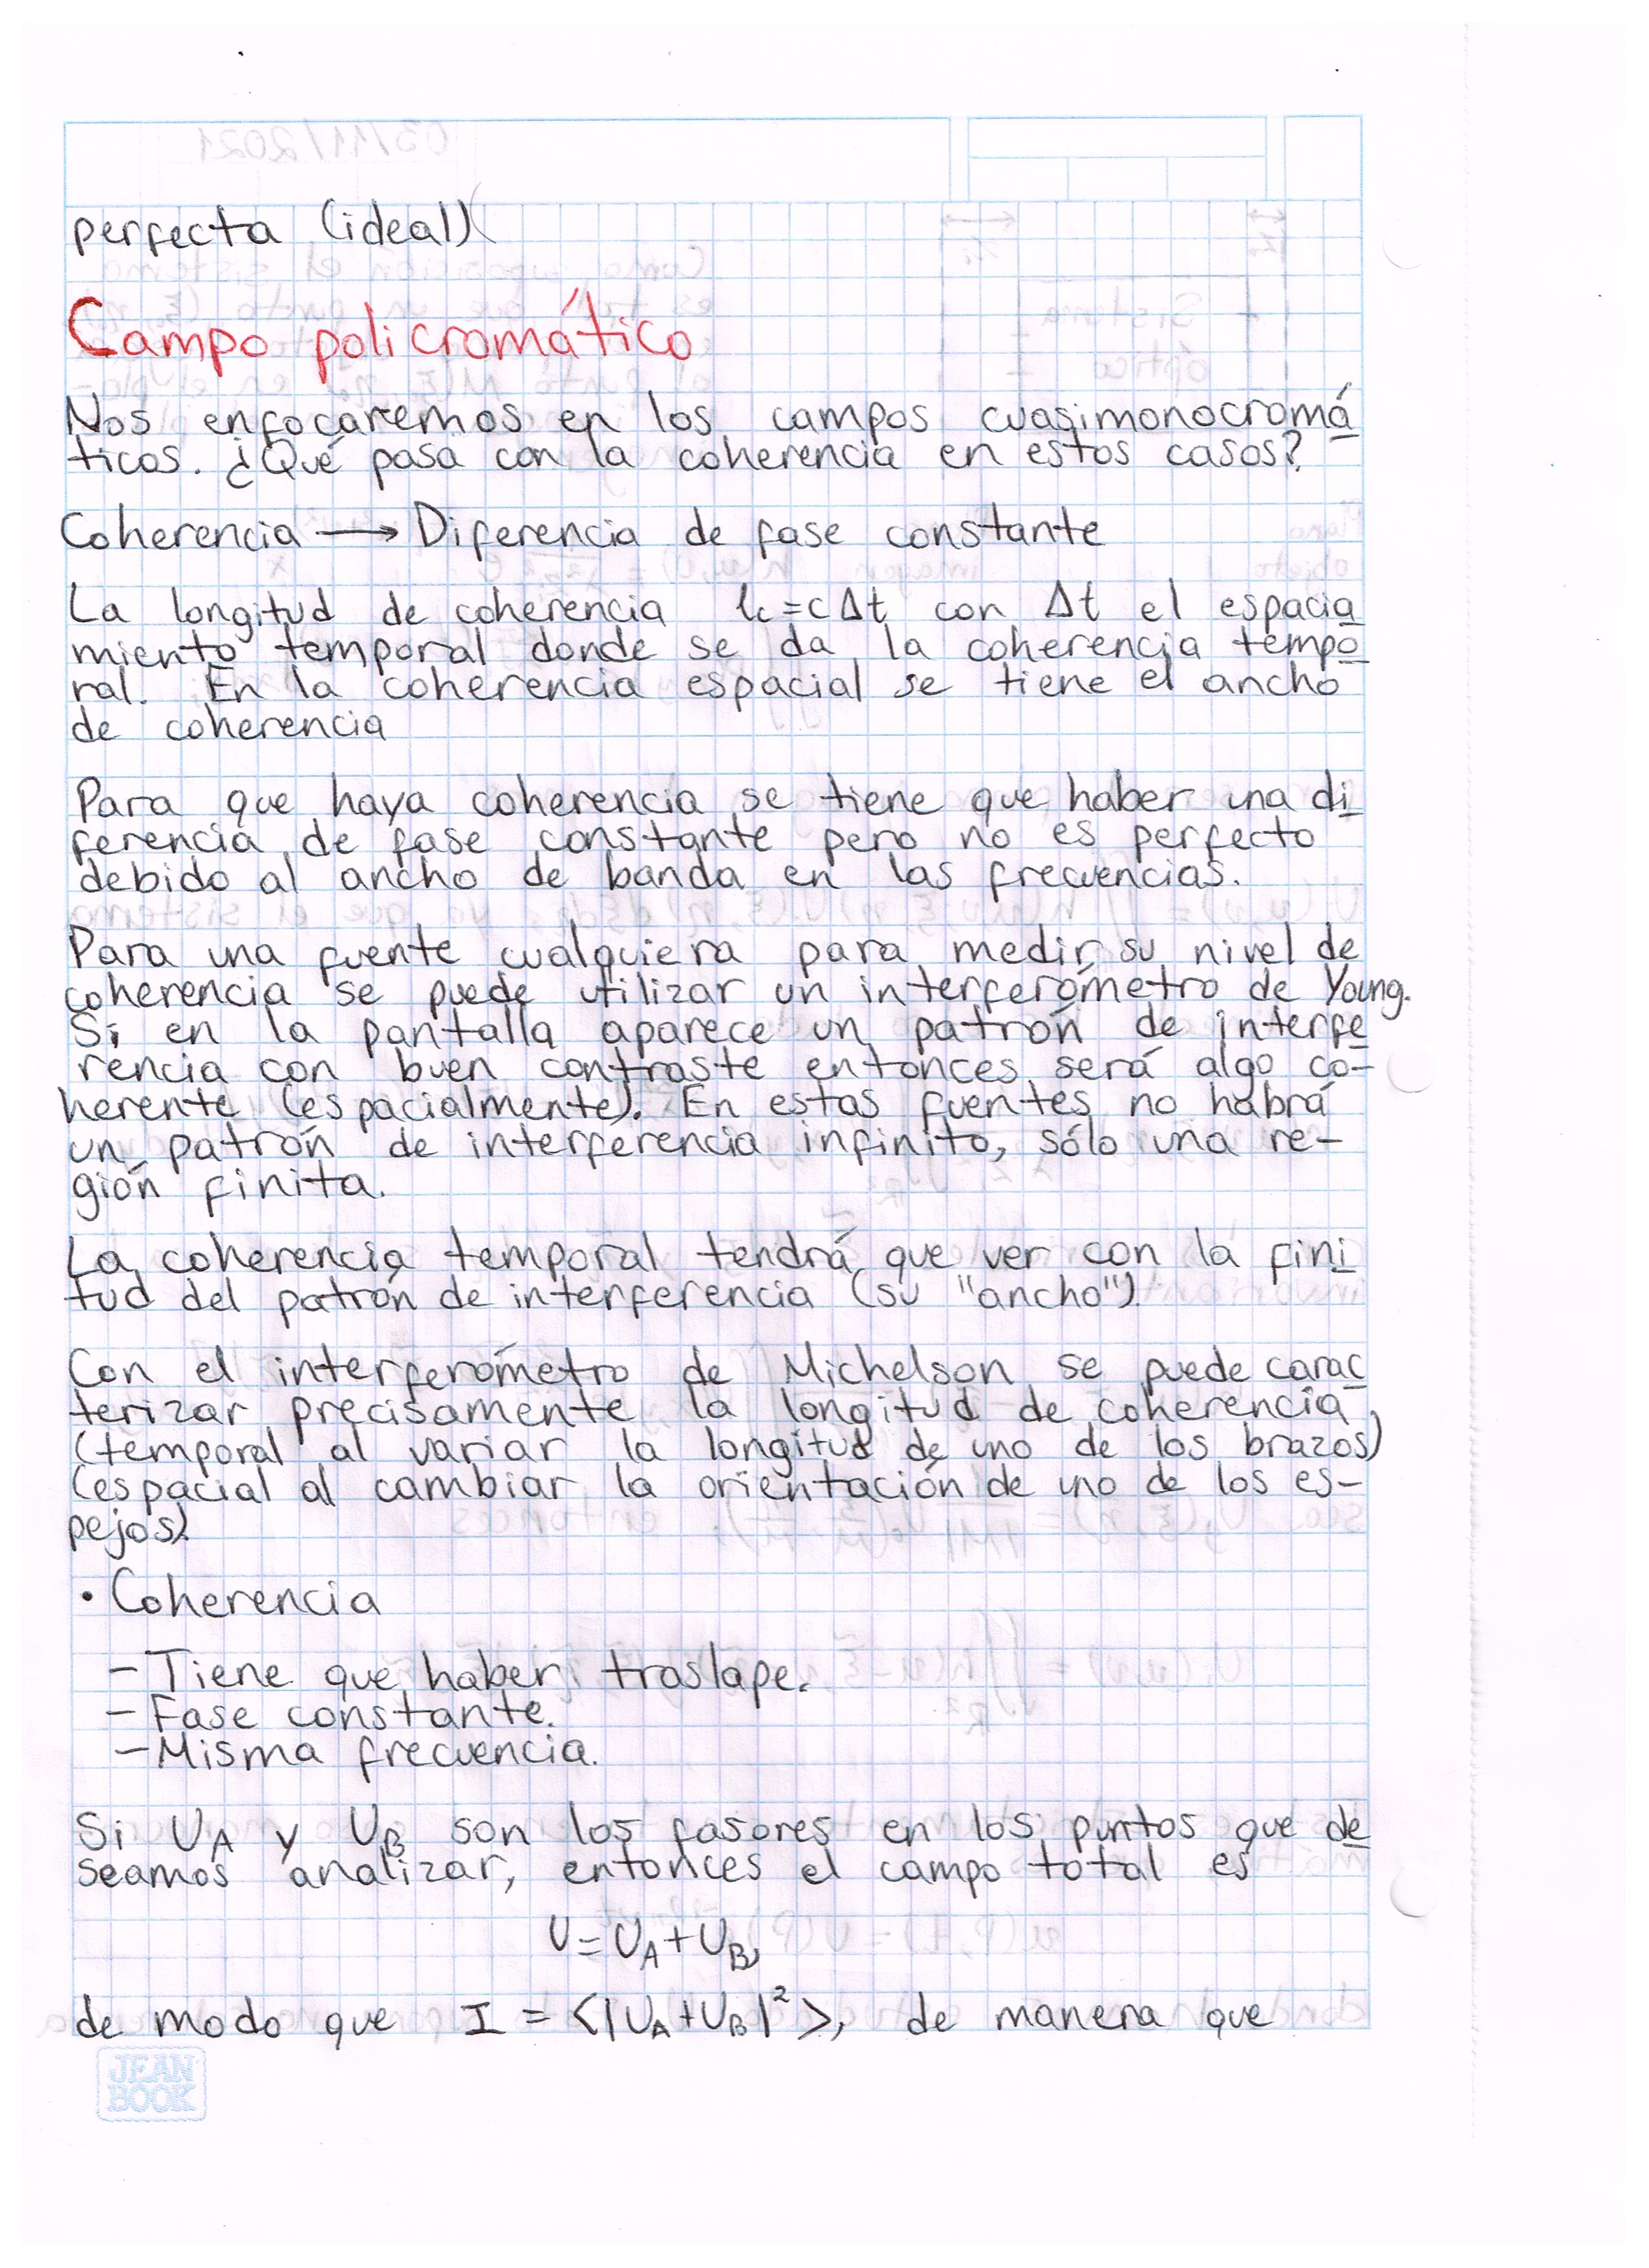 perfecta (ideal)
Campo policromático
Nos enfocaremos en los campos cuasimonocromá
ticos. ¿Qué pasa con la coherencia en estos casos?
Coherencia → Diferencia de fase constante
La longitud de coherencia lc = cΔt con Δt el espacia
miento temporal donde se da la coherencia tempo
ral. En la coherencia espacial se tiene el ancho
de coherencia
Para que haya coherencia se tiene que haber una di
ferencia de fase constante pero no es perfecto
debido al ancho de banda en las frecuencias.
Para una fuente cualquiera para medir su nivel de
coherencia se puede utilizar un interferómetro de Young.
Si en la pantalla aparece un patrón de interfe
rencia con buen contraste entonces será algo co-
herente (espacialmente). En estas fuentes no habrá
un patrón de interferencia infinito, sólo una re-
gión finita.
La coherencia temporal tendrá que ver con la fini
tud del patrón de interferencia (su "ancho").
Con el interferómetro de Michelson se puede carac
terizar precisamente la longitud de coherencia,
(temporal al variar la longitud de uno de los brazos)
(espacial al cambiar la orientación de uno de los es-
pejos).
• Coherencia
- Tiene que haber traslape.
- Fase constante.
- Misma frecuencia.
Si U_A y U_B son los fasores en los puntos que de
seamos analizar, entonces el campo total es
U = U_A + U_B,
de modo que I = <|U_A + U_B|²>, de manera que
JEAN
BOOK